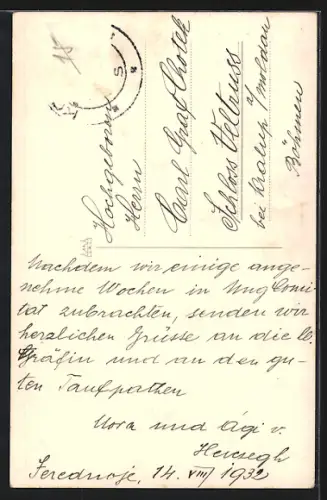 Hochgeboren
Herrn
Carl Graf Chotek
Schloss Veltruss
bei Kralup a/moldau
Böhmen
Nachdem wir einige ange-
nehme Wochen in Ung Comi-
tat zubrachten, senden wir
herzlichen Grüsse an die lb.
Gräfin und an den gu-
ten Taufpathen
Nora und Ági v.
Herczegh
14. VIII 1932